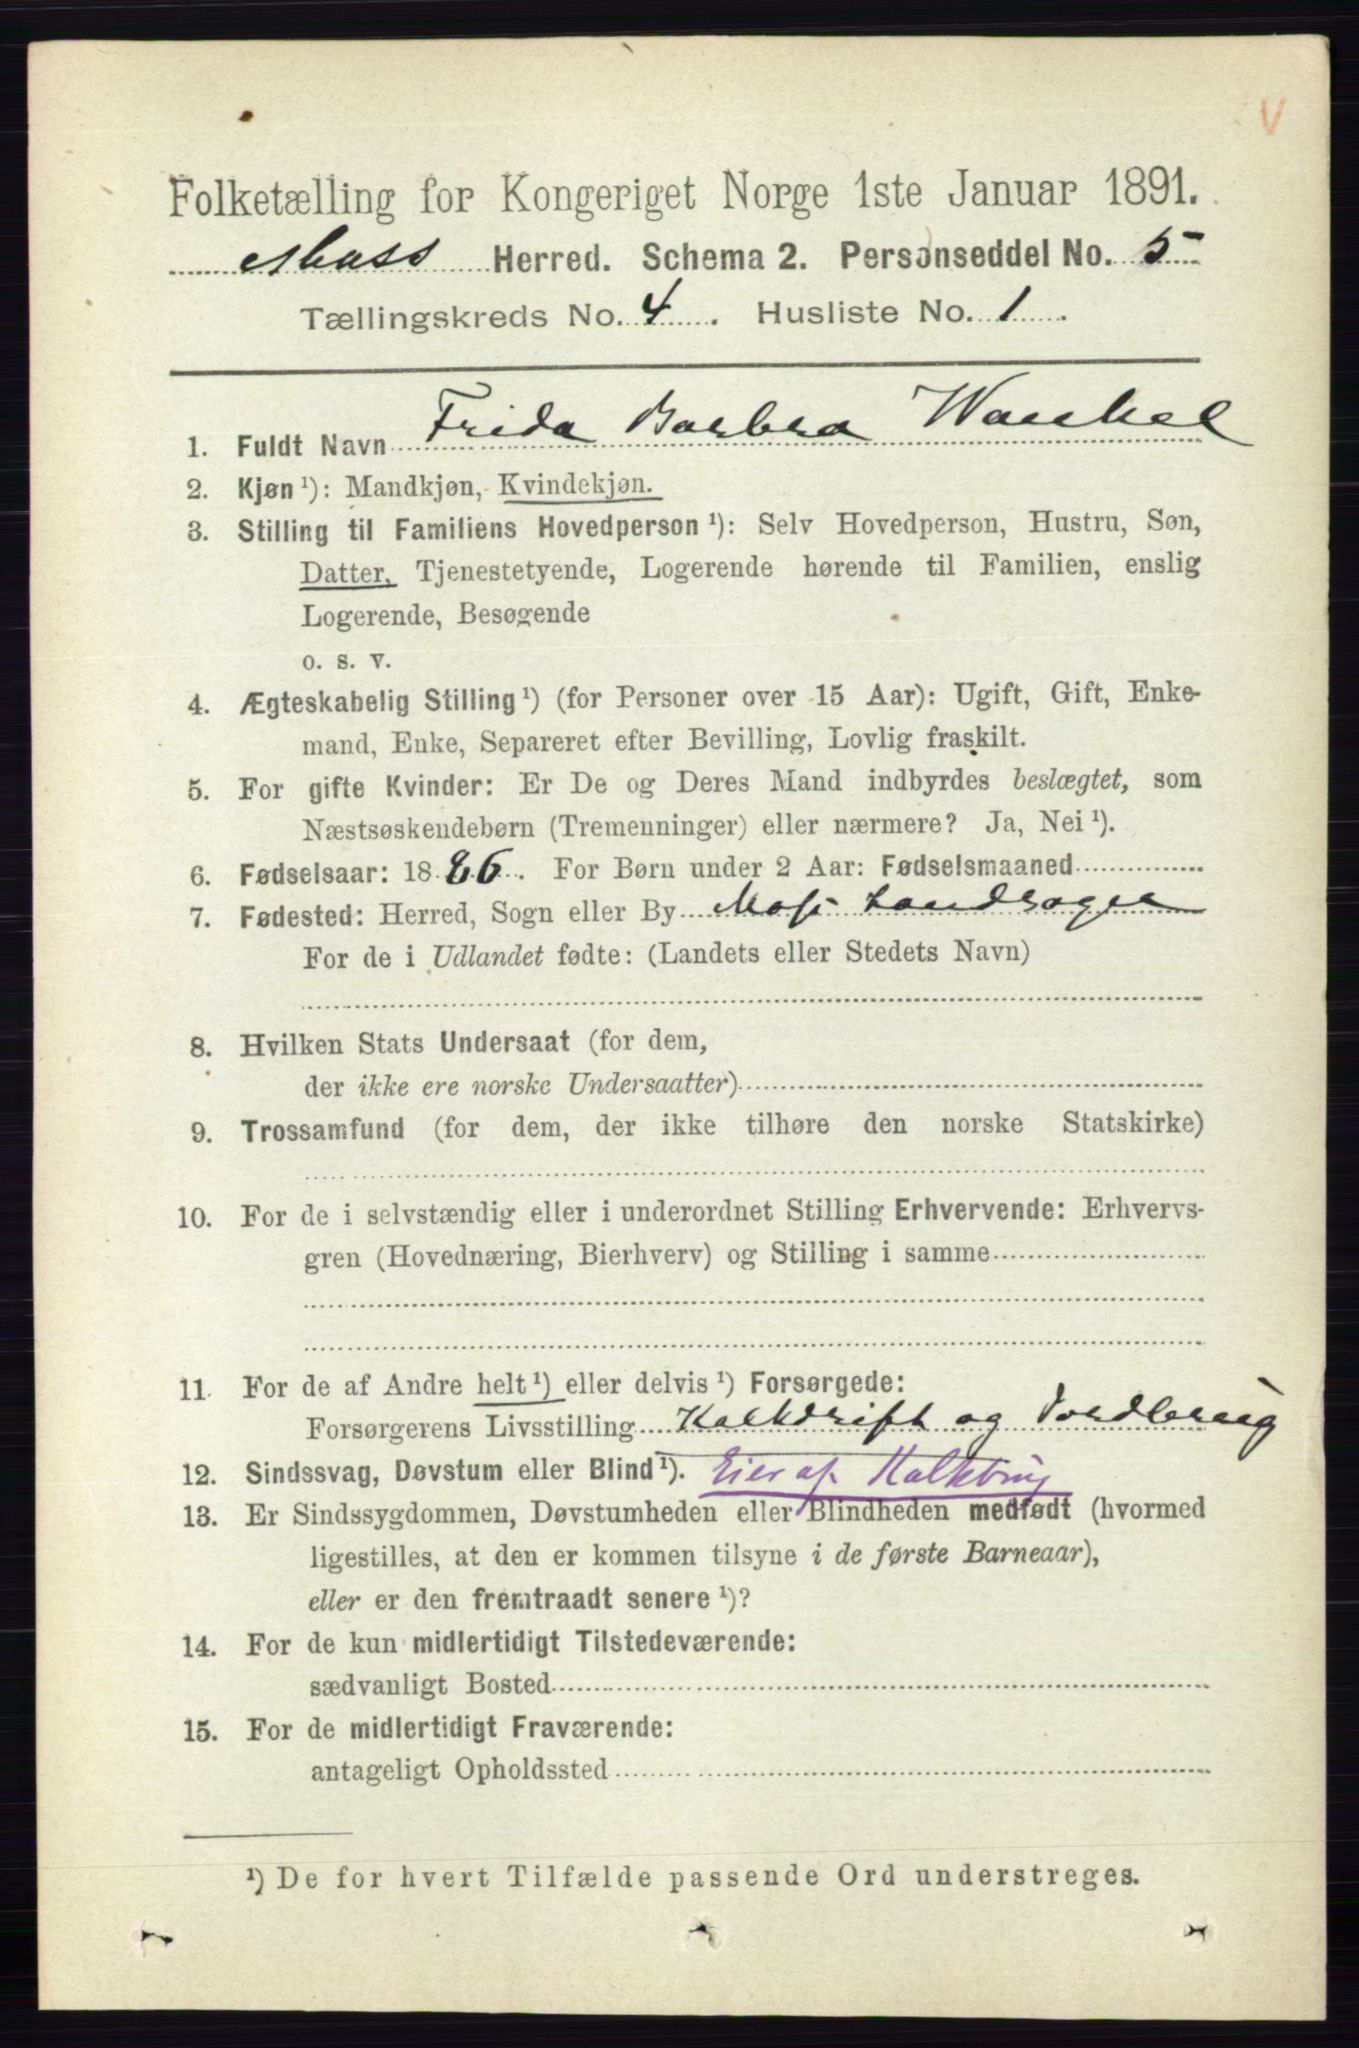 V
Folketælling for Kongeriget Norge 1ste Januar 1891.
Moss Herred. Schema 2. Personseddel No. 5
Tællingskreds No. 4. Husliste No. 1.
1. Fuldt Navn Frida Barbra Wankel
2. Kjøn ¹): Mandkjøn, Kvindekjøn.
3. Stilling til Familiens Hovedperson ¹): Selv Hovedperson, Hustru, Søn,
Datter, Tjenestetyende, Logerende hørende til Familien, enslig
Logerende, Besøgende
o. s. v.
4. Ægteskabelig Stilling ¹) (for Personer over 15 Aar): Ugift, Gift, Enke-
mand, Enke, Separeret efter Bevilling, Lovlig fraskilt.
5. For gifte Kvinder: Er De og Deres Mand indbyrdes beslægtet, som
Næstsøskendebørn (Tremenninger) eller nærmere? Ja, Nei ¹).
6. Fødselsaar: 1886. For Børn under 2 Aar: Fødselsmaaned
7. Fødested: Herred, Sogn eller By Moss Landsogn
For de i Udlandet fødte: (Landets eller Stedets Navn)
8. Hvilken Stats Undersaat (for dem,
der ikke ere norske Undersaatter)
9. Trossamfund (for dem, der ikke tilhøre den norske Statskirke)
10. For de i selvstændig eller i underordnet Stilling Erhvervende: Erhvervs-
gren (Hovednæring, Bierhverv) og Stilling i samme
11. For de af Andre helt ¹) eller delvis ¹) Forsørgede:
Forsørgerens Livsstilling Kalkdrift og Jordbrug
12. Sindssvag, Døvstum eller Blind ¹). Eier af Kalkbrug
13. Er Sindssygdommen, Døvstumheden eller Blindheden medfødt (hvormed
ligestilles, at den er kommen tilsyne i de første Barneaar),
eller er den fremtraadt senere ¹)?
14. For de kun midlertidigt Tilstedeværende:
sædvanligt Bosted
15. For de midlertidigt Fraværende:
antageligt Opholdssted
¹) De for hvert Tilfælde passende Ord understreges.